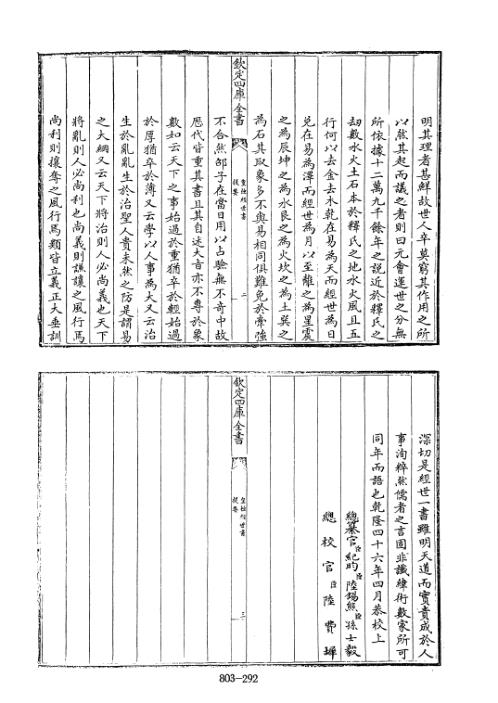 明其理者甚鮮故世人卒莫窮其作用之所
以然其起而議之者則曰元會運世之分無
所依據十二萬九千餘年之說近於釋氏之
劫數水火土石本於釋氏之地水火風且五
行何以去金去木乾在易為天而經世為日
兌在易為澤而經世為月以至離之為星震
之為辰坤之為水艮之為火坎之為土巽之
為石其取象多不與易相同俱難免於牽強
欽定四庫全書
皇極經世書
提要
二
不合然邵子在當日用以占驗無不奇中故
歴代皆重其書且其自述大㫖亦不専於象
數如云天下之事始過於重猶卒於輕始過
於厚猶卒於薄又云學以人事為大又云治
生於亂亂生於治聖人貴未然之防是謂易
之大綱又云天下將治則人必尚義也天下
將亂則人必尚利也尚義則謙讓之風行焉
尚利則攘奪之風行焉類皆立義正大垂訓
深切是經世一書雖明天道而實責成於人
事洵粹然儒者之言固非讖緯術數家所可
同年而語也乾隆四十六年四月恭校上
總纂官臣紀昀臣陸錫熊臣孫士毅
總校官臣陸費墀
欽定四庫全書
皇極經世書
提要
三
803-292